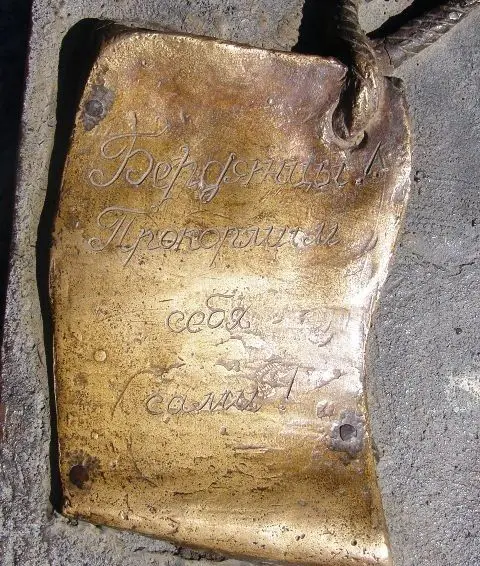 Бердянцы!
Прокормим
себя
сами!